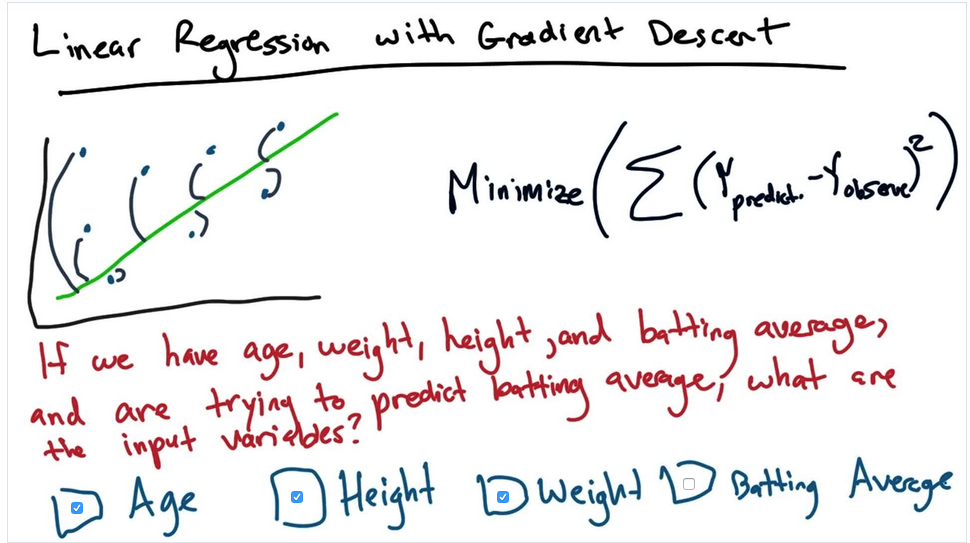 Linear Regression with Gradient Descent
Minimize(∑(Ypredict. - Yobserve)²)
If we have age, weight, height, and batting average,
and are trying to predict batting average, what are
the input variables?
Age Height Weight Batting Average